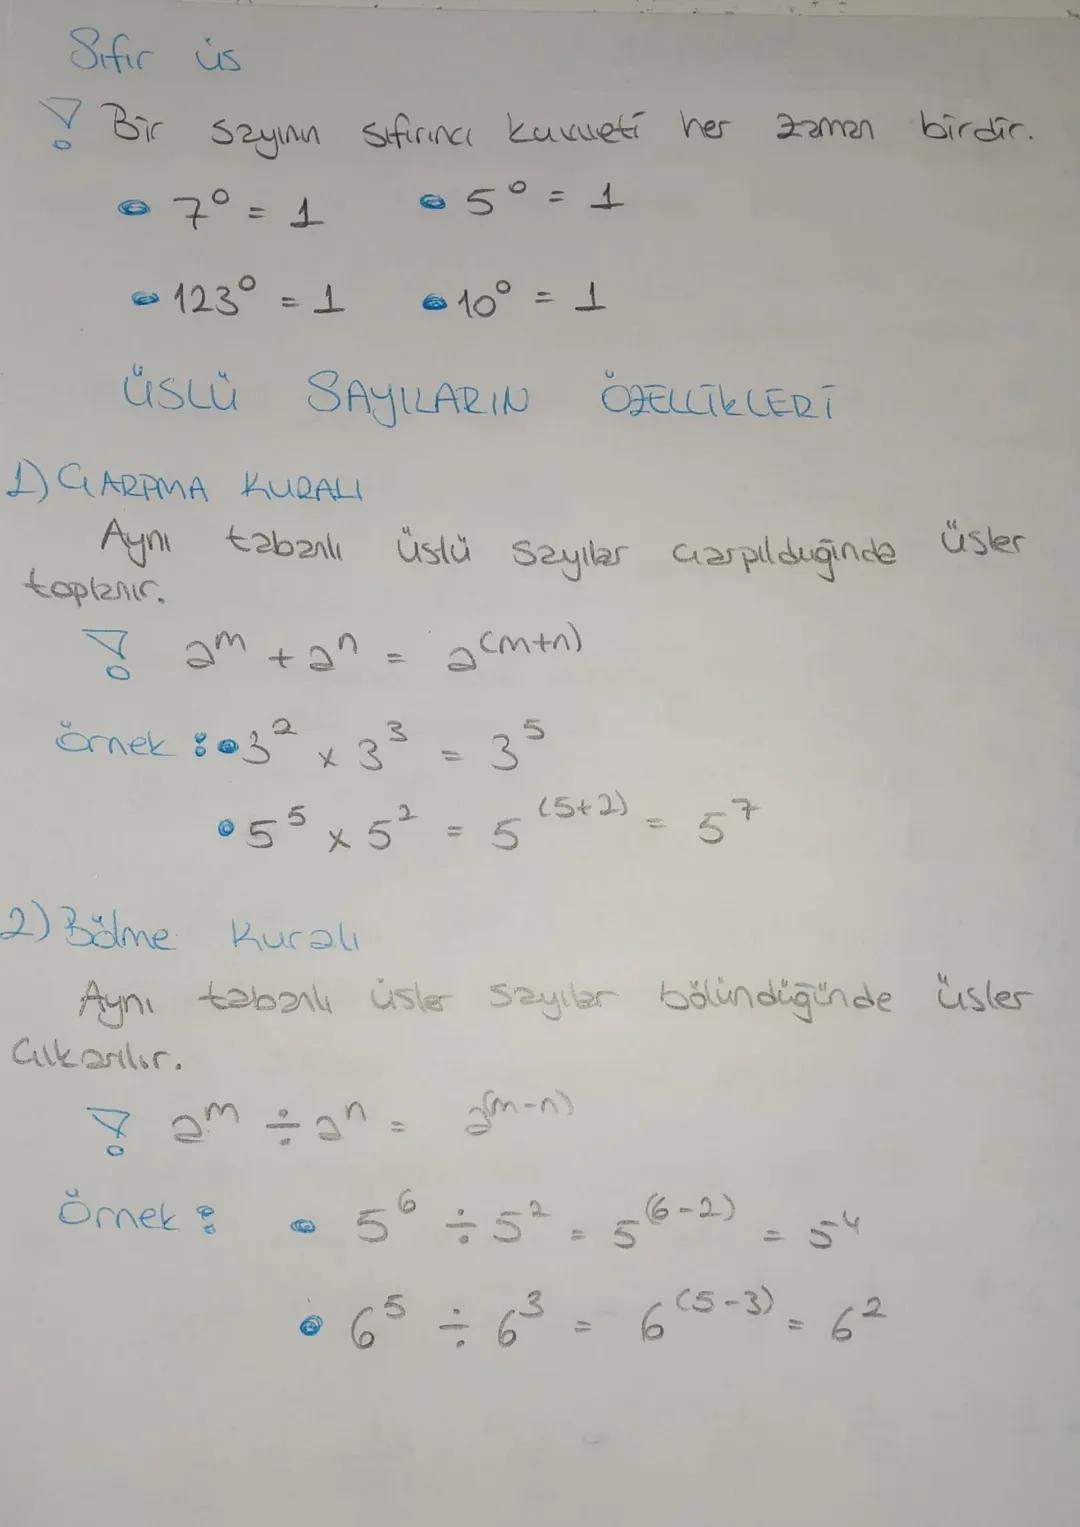 Sıfır üs
! Bir sayının sıfırıncı kuvveti her zaman birdir.
• 7⁰ = 1 • 5⁰ = 1
• 123⁰ = 1 • 10⁰ = 1
ÜSLÜ SAYILARIN ÖZELLİKLERİ
1) ÇARPMA KURALI
Aynı tabanlı üslü sayılar çarpıldığında üsler
toplanır.
! aᵐ + aⁿ = a⁽ᵐ⁺ⁿ⁾
Örnek : • 3² x 3³ = 3⁵
• 5⁵ x 5² = 5⁽⁵⁺²⁾ = 5⁷
2) Bölme Kuralı
Aynı tabanlı üsler sayılar bölündüğünde üsler
çıkarılır.
! aᵐ ÷ aⁿ = a⁽ᵐ⁻ⁿ⁾
Örnek : • 5⁶ ÷ 5² = 5⁽⁶⁻²⁾ = 5⁴
• 6⁵ ÷ 6³ = 6⁽⁵⁻³⁾ = 6²